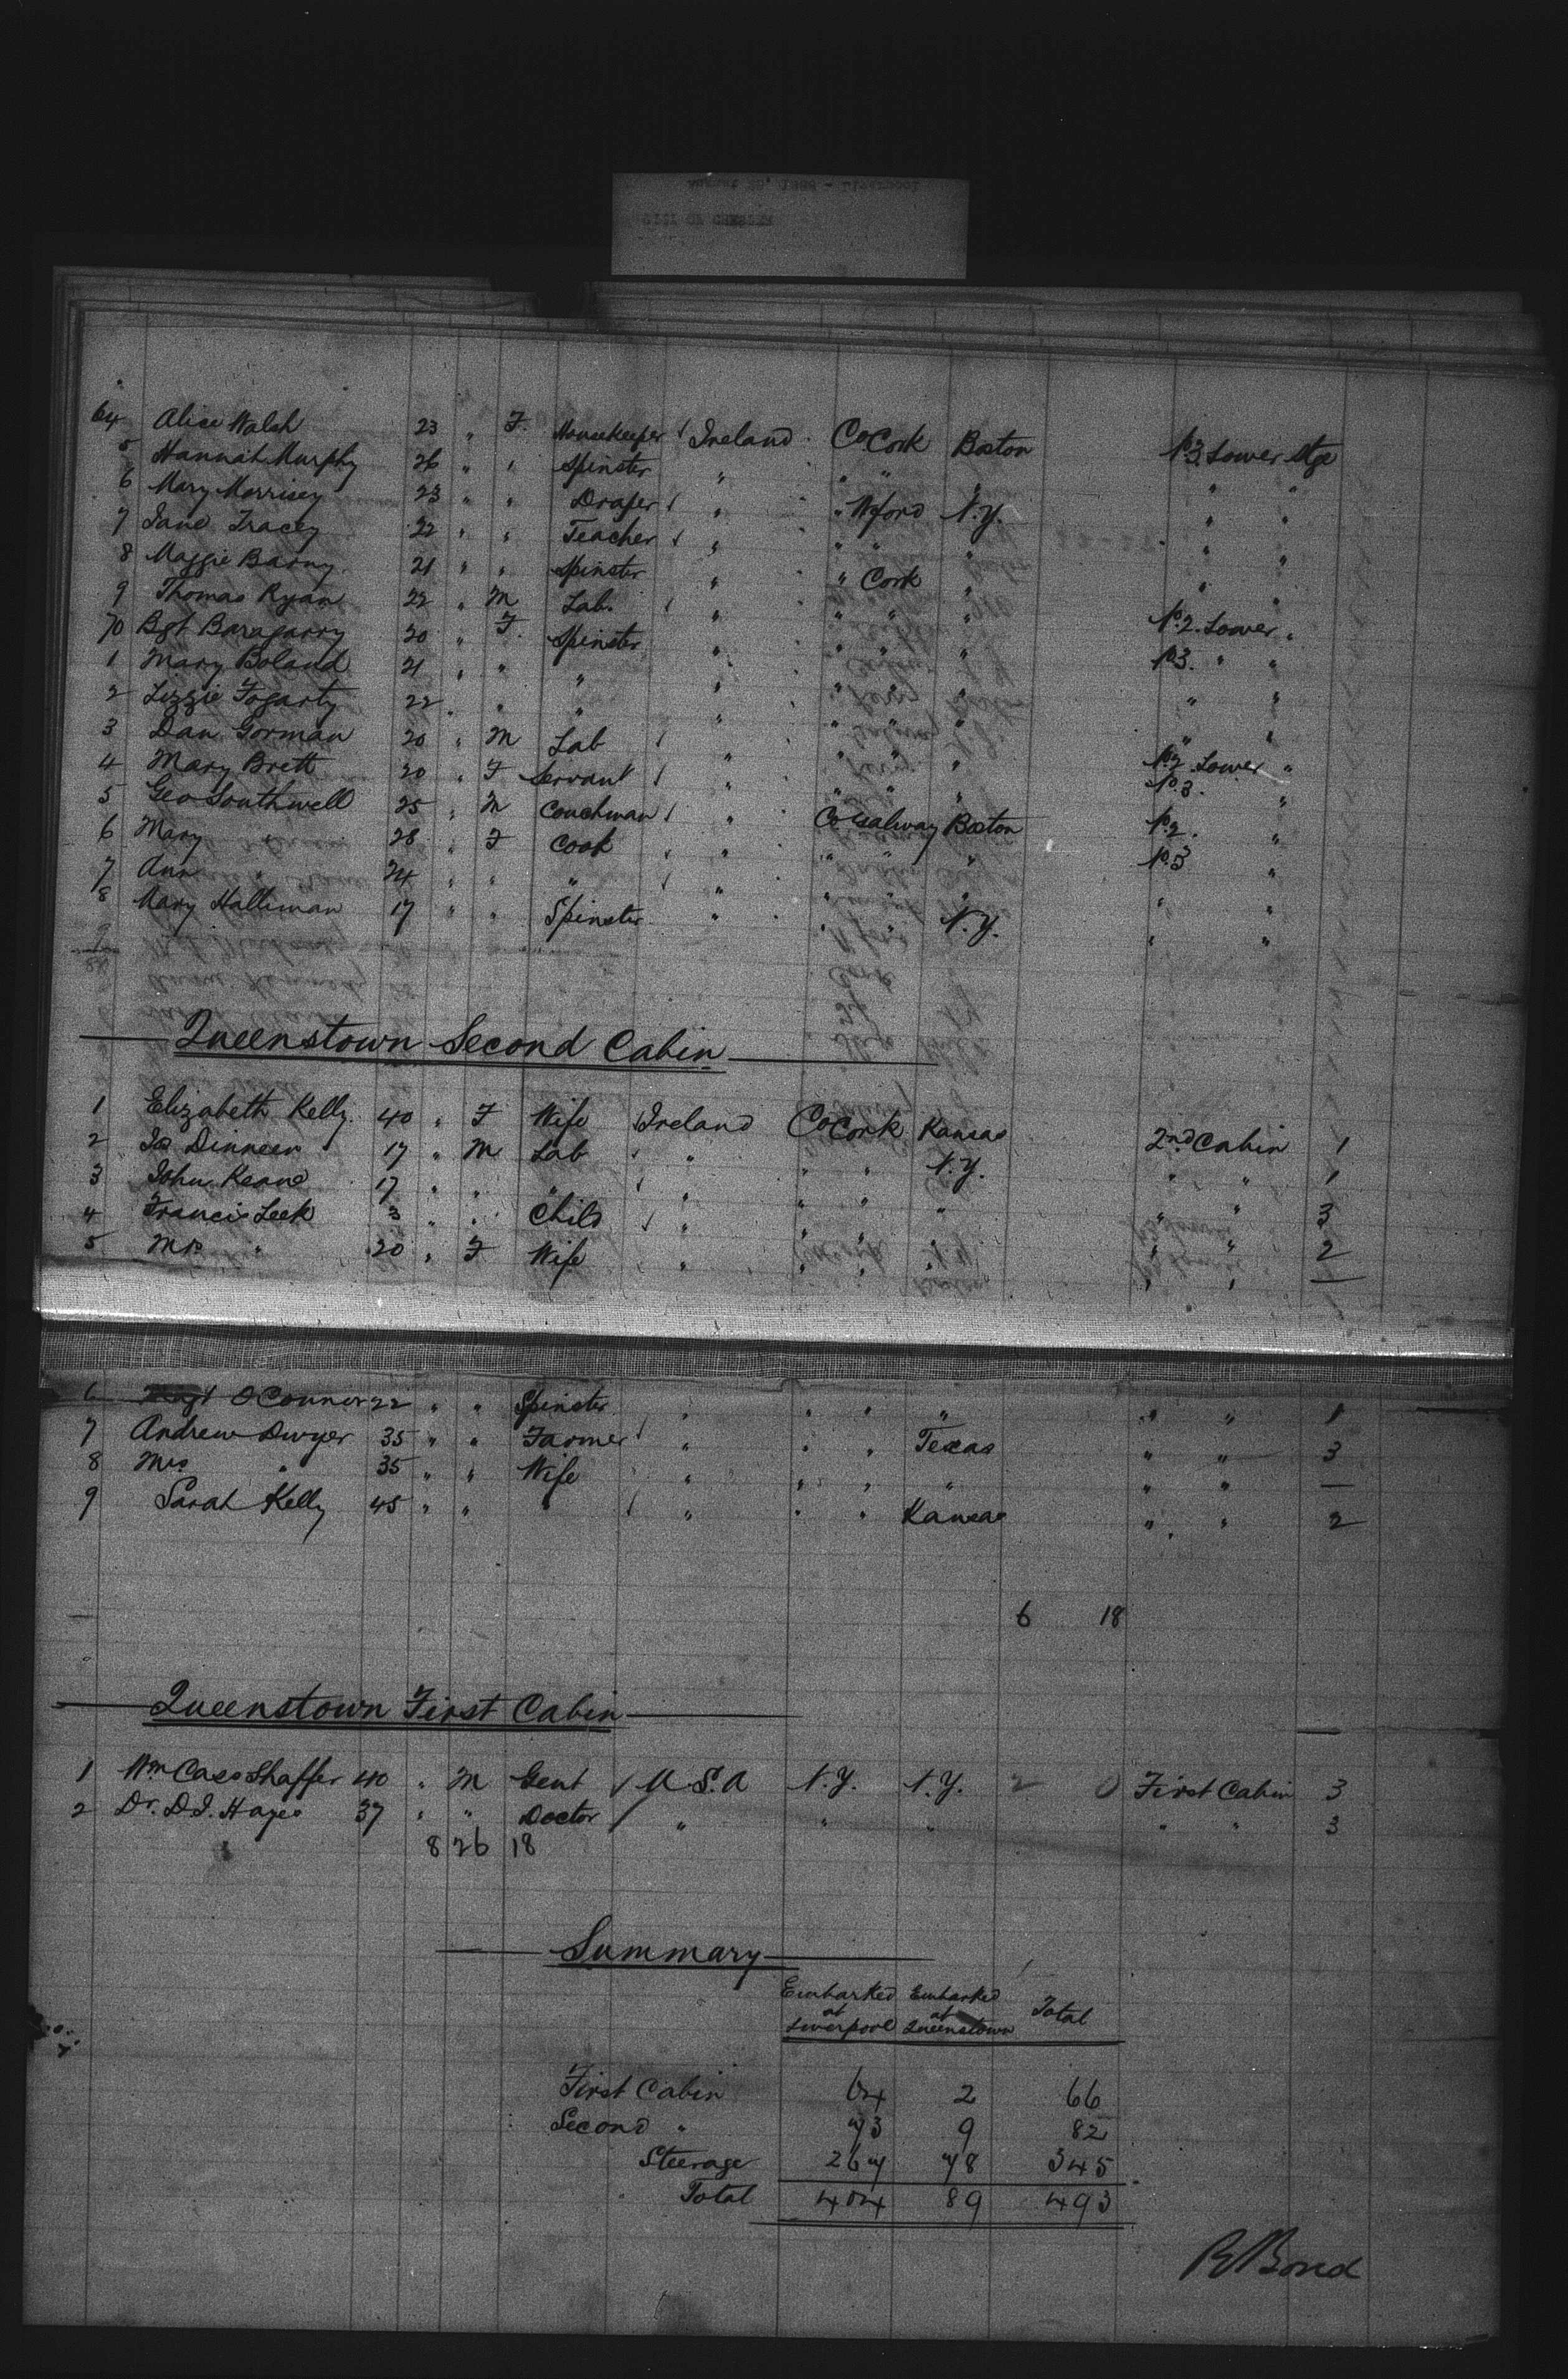 64 Alice Walsh 23 " F. Housekeeper / Ireland Co Cork Boston No 3 Lower Stge
5 Hannah Murphy 26 " " Spinster " " " " " "
6 Mary Morrisey 23 " " Draper / " " Wford N.Y. " "
7 Jane Tracey 22 " " Teacher / " " " " " "
8 Maggie Barny 21 " " Spinster " " Cork " " "
9 Thomas Ryan 22 " M Lab. / " " " " No. 2. Lower "
70 Bgt 20 " F. Spinster " " " " No 3. " "
1 Mary Boland 21 " " " " " " " " "
2 Lizzie Fogarty 22 " " " " " " " " "
3 Dan Gorman 20 " M Lab / " " " " No. 2 Lower "
4 Mary Brett 20 " F Servant / " " " " No. 3. "
5 Geo Southwell 25 " M Coachman / " Co Galway Boston No. 2. "
6 Mary " 28 " F Cook / " " " " No. 3 "
7 Ann " 24 " " " / " " " " " "
8 Mary Halliman 17 " " Spinster " " " N.Y. " "
Queenstown Second Cabin
1 Elizabeth Kelly 40 " F Wife / Ireland Co Cork Kansas 2nd Cabin 1
2 Jas Dinneen 17 " M Lab / " " " N.Y. " " 1
3 John Keane 17 " " " / " " " " " " 3
4 Francis Leek 3 " " Child / " " " " " " 2
5 Mrs " 20 " F Wife " " " " " " —
6 Magt O'Connor 22 " " Spinster " " " " " " 1
7 Andrew Dwyer 35 " " Farmer / " " " Texas " " 3
8 Mrs " 35 " " Wife " " " " " " —
9 Sarah Kelly 45 " " " / " " " Kansas " " 2
6 18
Queenstown First Cabin
1 Wm Cass Shaffer 40 " M Gent / U.S.A N.Y. N.Y. 2 0 First Cabin 3
2 Dr. D.I. Hayes 37 " " Doctor / " " " " " 3
8 26 18
Summary
Embarked at Liverpool Embarked at Queenstown Total
First Cabin 64 2 66
Second " 73 9 82
Steerage 267 78 345
Total 404 89 493
R Bond